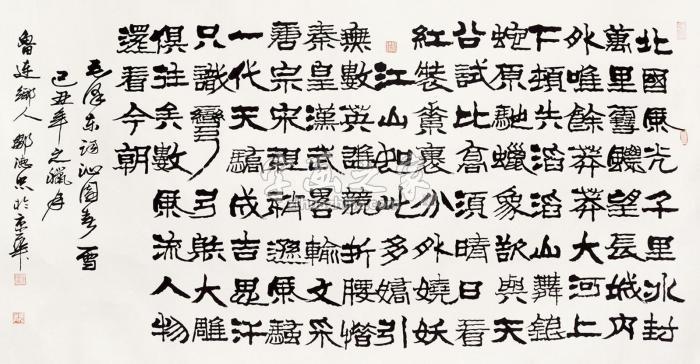 北國風光千里冰封
萬里雪飄望長城內
外唯餘莽莽大河上
下頓失滔滔山舞銀
蛇原馳蠟象欲與天
公試比高須晴日看
紅裝素裹分外嬈妖
江山如此多嬌引
無數英雄競折腰惜
秦皇漢武畧輸文采
唐宗宋祖稍遜風騷
一代天驕成吉思汗
只識彎弓射大雕
俱往矣數風流人物
還看今朝
毛澤東詞沁園春雪
己丑年之臘月
魯連鄉人鄒德忠於京華